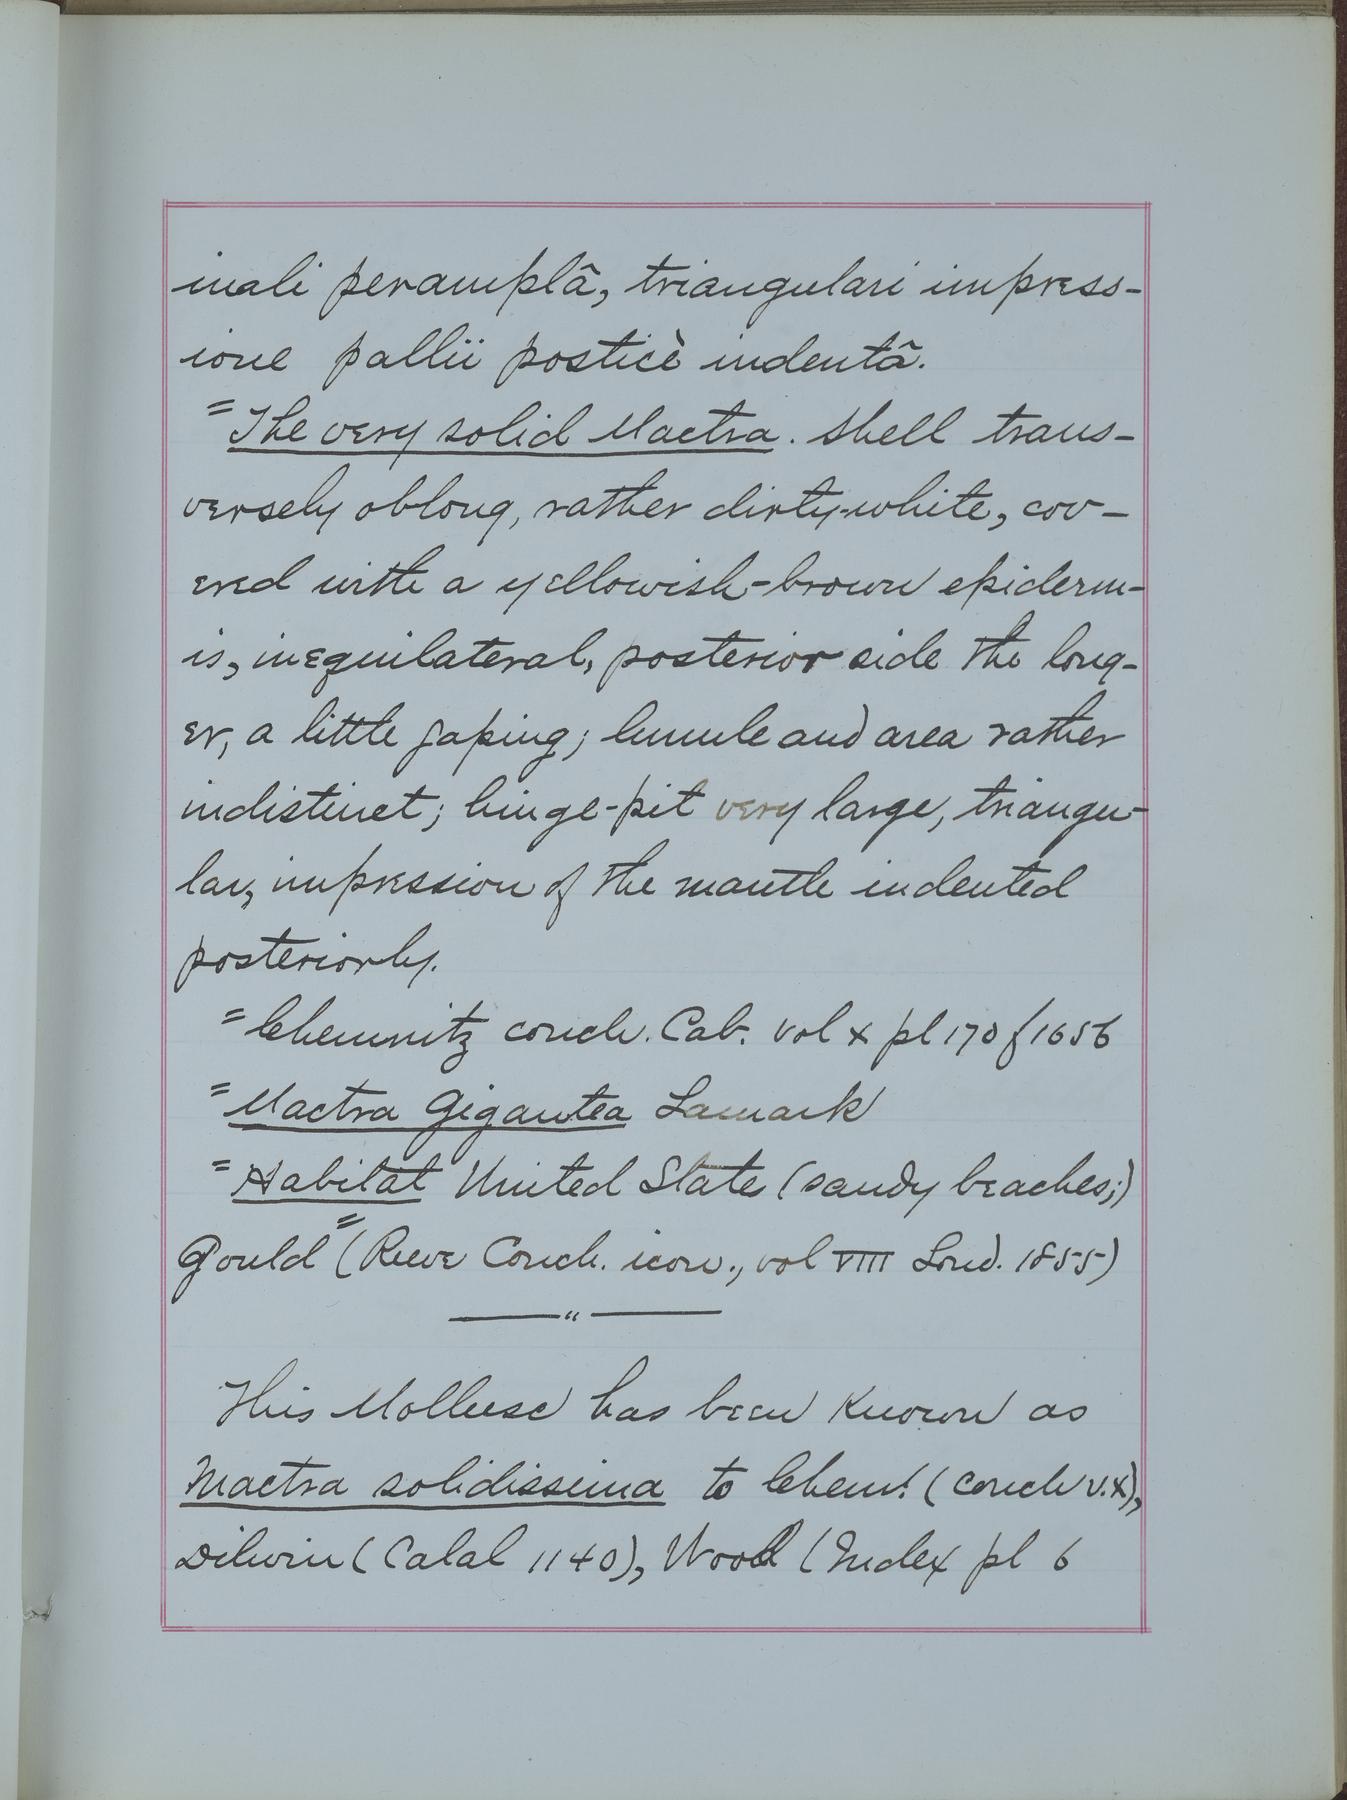 inali peramplâ, triangulari impress-
ione pallii posticè indentâ.
"The very solid Mactra. Shell trans-
versely oblong, rather dirty-white, cov-
ered with a yellowish-brown epiderm-
is, inequilateral, posterior side the long-
er, a little gaping; lunule and area rather
indistinct; hinge-pit very large, triangu-
lar, impression of the mantle indented
posteriorly.
"Chemnitz conch. Cab. vol x pl 170 f 1656
"Mactra Gigantea Lamark
"Habitat United State (sandy beaches;)
Gould" (Reeve Conch. icon., vol VIII Lond. 1855)
— " —
This Mollusc has been known as
Mactra solidissima to Chem! (Conch v. x),
Dilwin (Calal 1140), Wood (Index pl 6